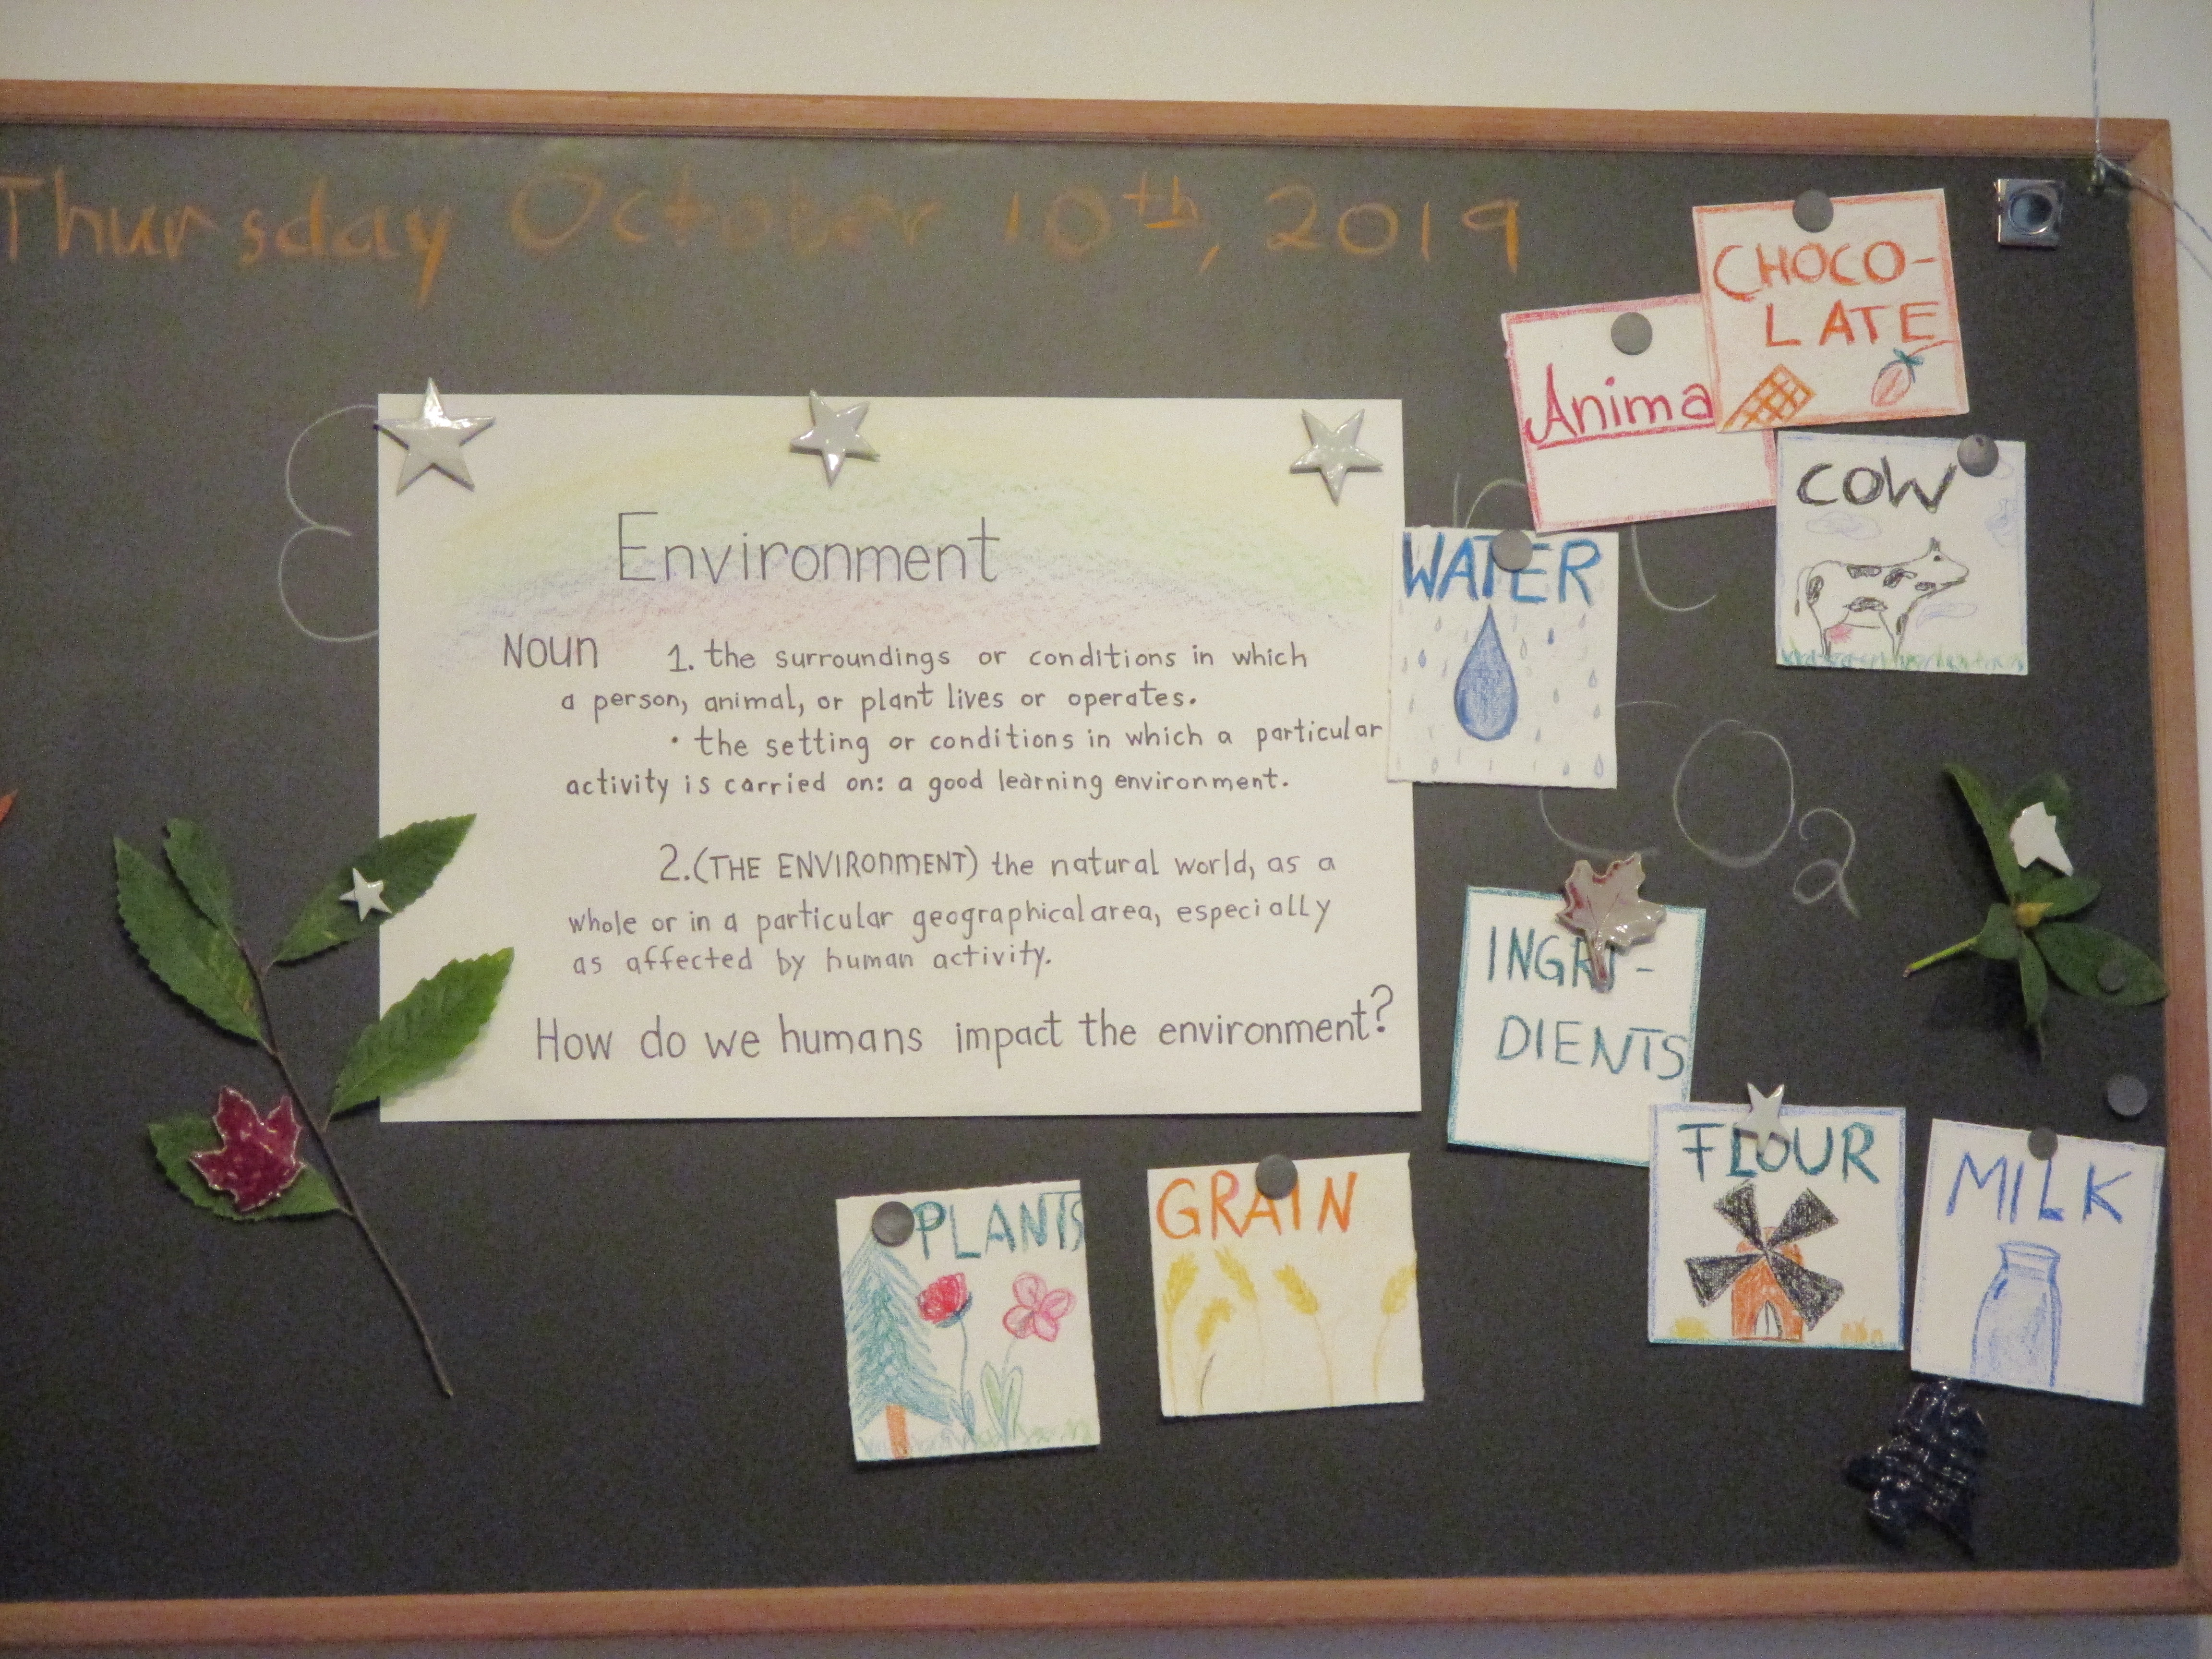 Thursday October 10th, 2019
Environment
Noun 1. the surroundings or conditions in which
a person, animal, or plant lives or operates.
• the setting or conditions in which a particular
activity is carried on: a good learning environment.
2. (THE ENVIRONMENT) the natural world, as a
whole or in a particular geographical area, especially
as affected by human activity.
How do we humans impact the environment?
CHOCO-
LATE
Anima
COW
WATER
CO2
INGR -
DIENTS
FLOUR
MILK
PLANTS
GRAIN